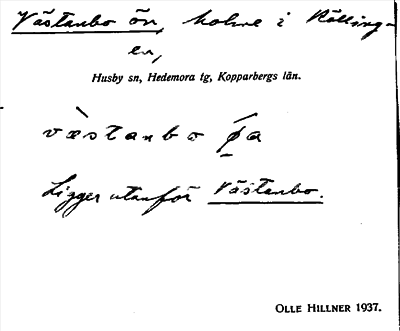 Västanbo ön, holme i Rölling-
en,
Husby sn, Hedemora tg, Kopparbergs län.
væ̀stanbo ǿ̠a
Ligger utanför Västanbo.
OLLE HILLNER 1937.